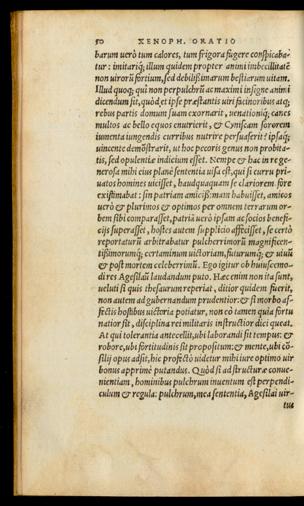 50 XENOPH. ORATIO
barum uerò tum calores, tum frigora fugere conspicaba-
tur: imitariq́; illum quidem propter animi imbecillitatē
non uirorū fortium, sed debilißimarum bestiarum uitam.
Illud quoq; qui non perpulchrū ac maximi insigne animi
dicendum sit, quòd, et ipse præstantis uiri facinoribus atq;
rebus partis domum suam exornarit, uenationiq́; canes
multos ac bello equos enutrierit, & Cyniscam sororem
iumenta iungendis curribus nutrire persuaserit? ipsaq́;
uincente demōstrarit, ut hoc pecoris genus non probita-
tis, sed opulentiæ indicium esset. Nempe & hac in re ge-
nerosa mihi eius planè sententia uisa est, qui si curru pri-
uatos homines uicisset, haudquaquam se clariorem fore
existimabat: sin patriam amicißimam habuisset, amicos
uerò & plurimos & optimos per omnem terrarum or-
bem sibi comparasset, patriā uerò ipsam ac socios benefi-
cijs superasset, hostes autem supplicio affecisset, se certò
reportaturū arbitrabatur pulcherrimorū magnificen-
tißimorumq́; certaminum uictoriam, futurumq́; & uiuū
& post mortem celeberrimū. Ego igitur ob huiuscemo-
dires Agesilaū laudandum puto. Hæc enim non ita sunt,
ueluti si quis thesaurum reperiat, ditior quidem fuerit,
non autem ad gubernandum prudentior: & si morbo af-
fectis hostibus uictoria potiatur, non eò tamen quia fortu
natior sit, disciplina rei militaris instructior dici queat.
At qui tolerantia antecellit, ubi laborandi sit tempus: &
robore, ubi fortitudinis sit propositum: & mente, ubi cō-
silij opus adsit, hic profectò uidetur mihi iure optimo uir
bonus apprimè putandus. Quòd si ad structuræ conue-
nientiam, hominibus pulchrum inuentum est perpendi-
culum & regula: pulchrum, mea sententia, Agesilai uir-
tus